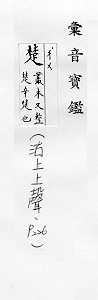 彙音寶鑑
楚
叢木又整
楚辛楚也
(沽上上聲、P226